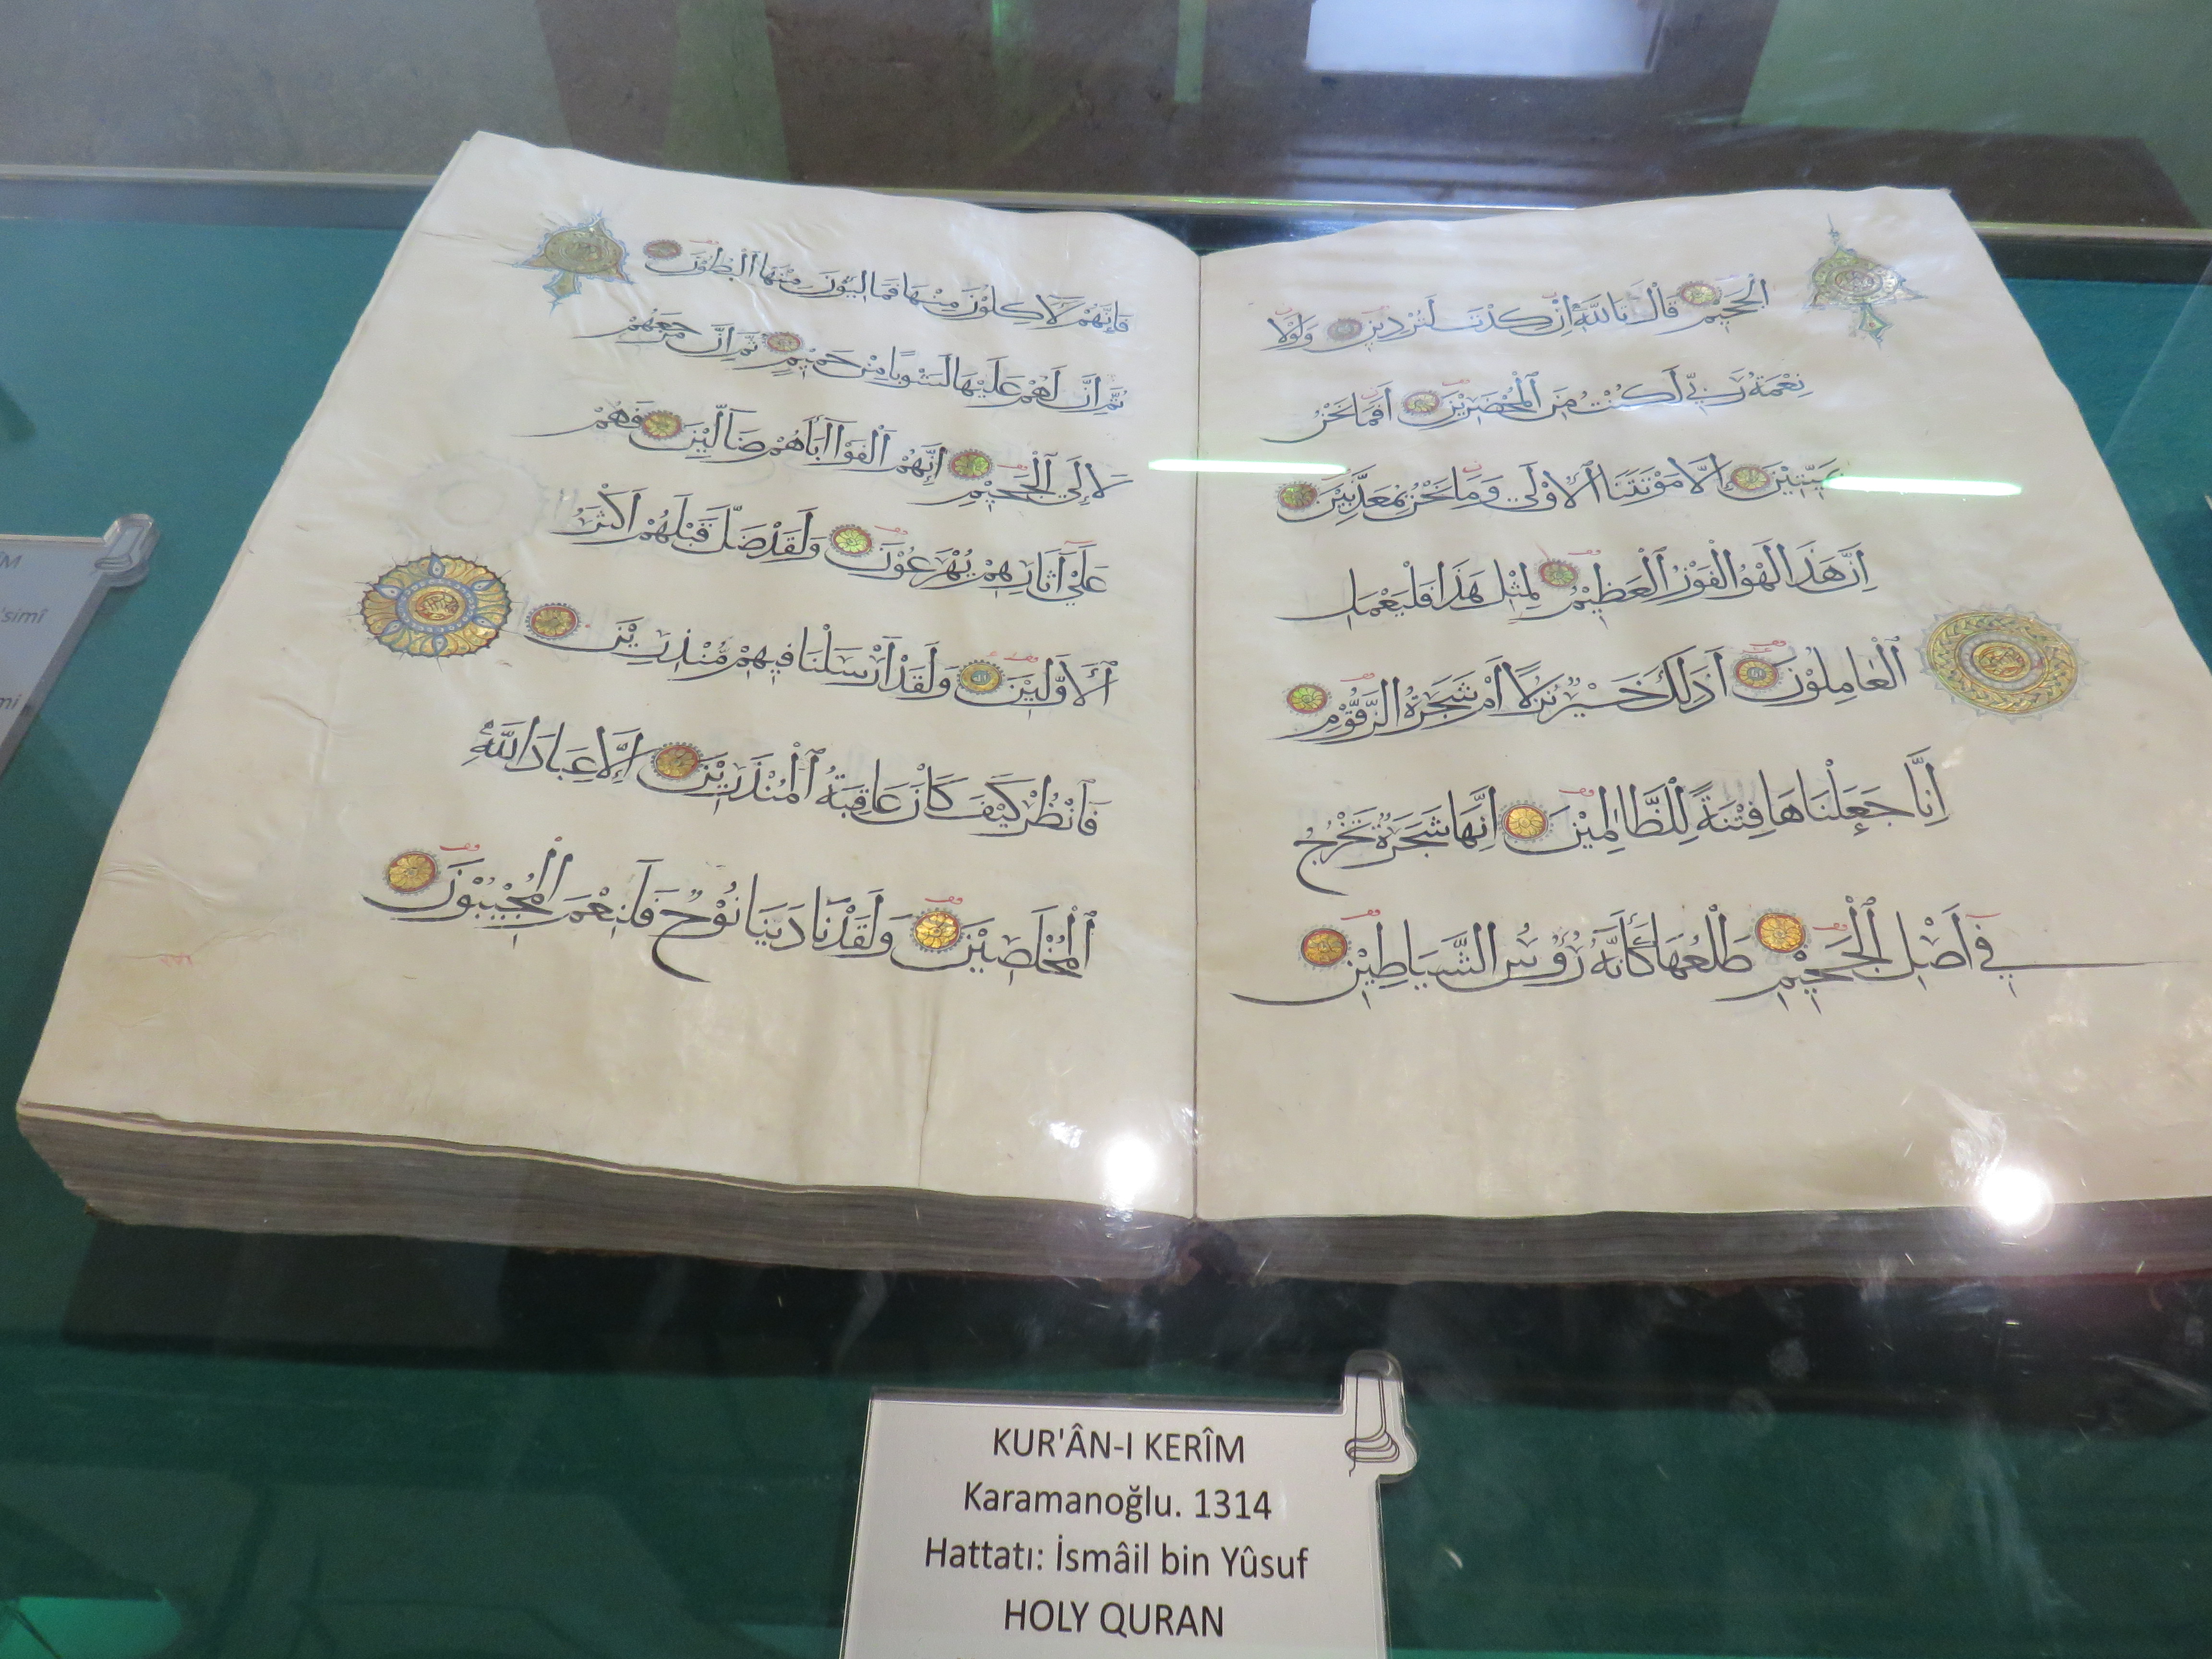 الْجَحِيْمِ قَالَ تَاللّٰهِ اِنْ كِدْتَ لَتُرْدِيْنِ وَلَوْلَا
نِعْمَةُ رَبِّيْ لَكُنْتُ مِنَ الْمُحْضَرِيْنَ اَفَمَا نَحْنُ
بِمَيِّتِيْنَ اِلَّا مَوْتَتَنَا الْاُوْلٰى وَمَا نَحْنُ بِمُعَذَّبِيْنَ
اِنَّ هَذَا لَهْوَ الْفَوْزُ الْعَظِيْمُ لِمِثْلِ هَذَا فَلْيَعْمَلِ
الْعَامِلُوْنَ اَذَلِكَ خَيْرٌ نُزُلًا اَمْ شَجَرَةُ الزَّقُّوْمِ
اِنَّا جَعَلْنَاهَا فِتْنَةً لِلظَّالِمِيْنَ اِنَّهَا شَجَرَةٌ تَخْرُجُ
فِيْ اَصْلِ الْجَحِيْمِ طَلْعُهَا كَاَنَّهُ رُؤُسُ الشَّيَاطِيْنِ
فَاِنَّهُمْ لَاٰكِلُوْنَ مِنْهَا فَمَالِئُوْنَ مِنْهَا الْبُطُوْنَ
ثُمَّ اِنَّ لَهُمْ عَلَيْهَا لَشَوْبًا مِنْ حَمِيْمٍ ثُمَّ اِنَّ مَرْجِعَهُمْ
لَاِلَى الْجَحِيْمِ اِنَّهُمْ اَلْفَوْا اٰبَاءَهُمْ ضَالِّيْنَ فَهُمْ
عَلٰى اٰثَارِهِمْ يُهْرَعُوْنَ وَلَقَدْ ضَلَّ قَبْلَهُمْ اَكْثَرُ
الْاَوَّلِيْنَ وَلَقَدْ اَرْسَلْنَا فِيْهِمْ مُنْذِرِيْنَ
فَانْظُرْ كَيْفَ كَانَ عَاقِبَةُ الْمُنْذَرِيْنَ اِلَّا عِبَادَ اللّٰهِ
الْمُخْلَصِيْنَ وَلَقَدْ نَادَيْنَا نُوْحٌ فَلَنِعْمَ الْمُجِيْبُوْنَ
KUR'ÂN-I KERÎM
Karamanoğlu. 1314
Hattatı: İsmâil bin Yûsuf
HOLY QURAN